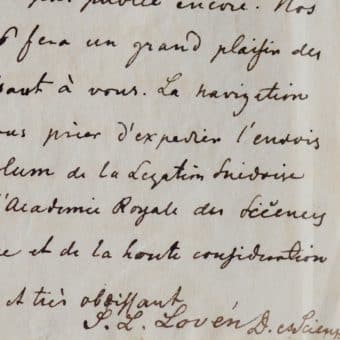 publié encore. Nos
fera un grand plaisir des
sant à vous. La navigation
ous prier d'expedier l'envois
olum de la Legation Suédoise
l'Academie Royale des Sciences
e et de la haute consideration
et très obéissant
S. L. Lovén D. es Scienc